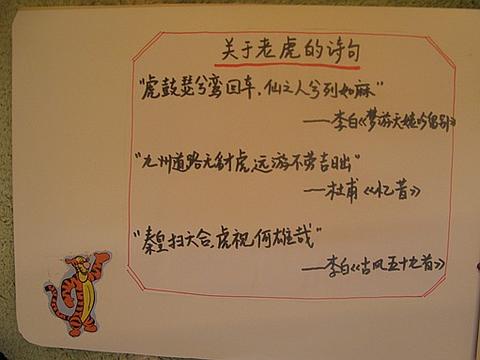 关于老虎的诗句
“虎鼓瑟兮鸾回车，仙之人兮列如麻”
——李白《梦游天姥吟留别》
“九州道路无豺虎，远游不劳吉日出”
——杜甫《忆昔》
“秦皇扫六合，虎视何雄哉”
——李白《古风五十九首》